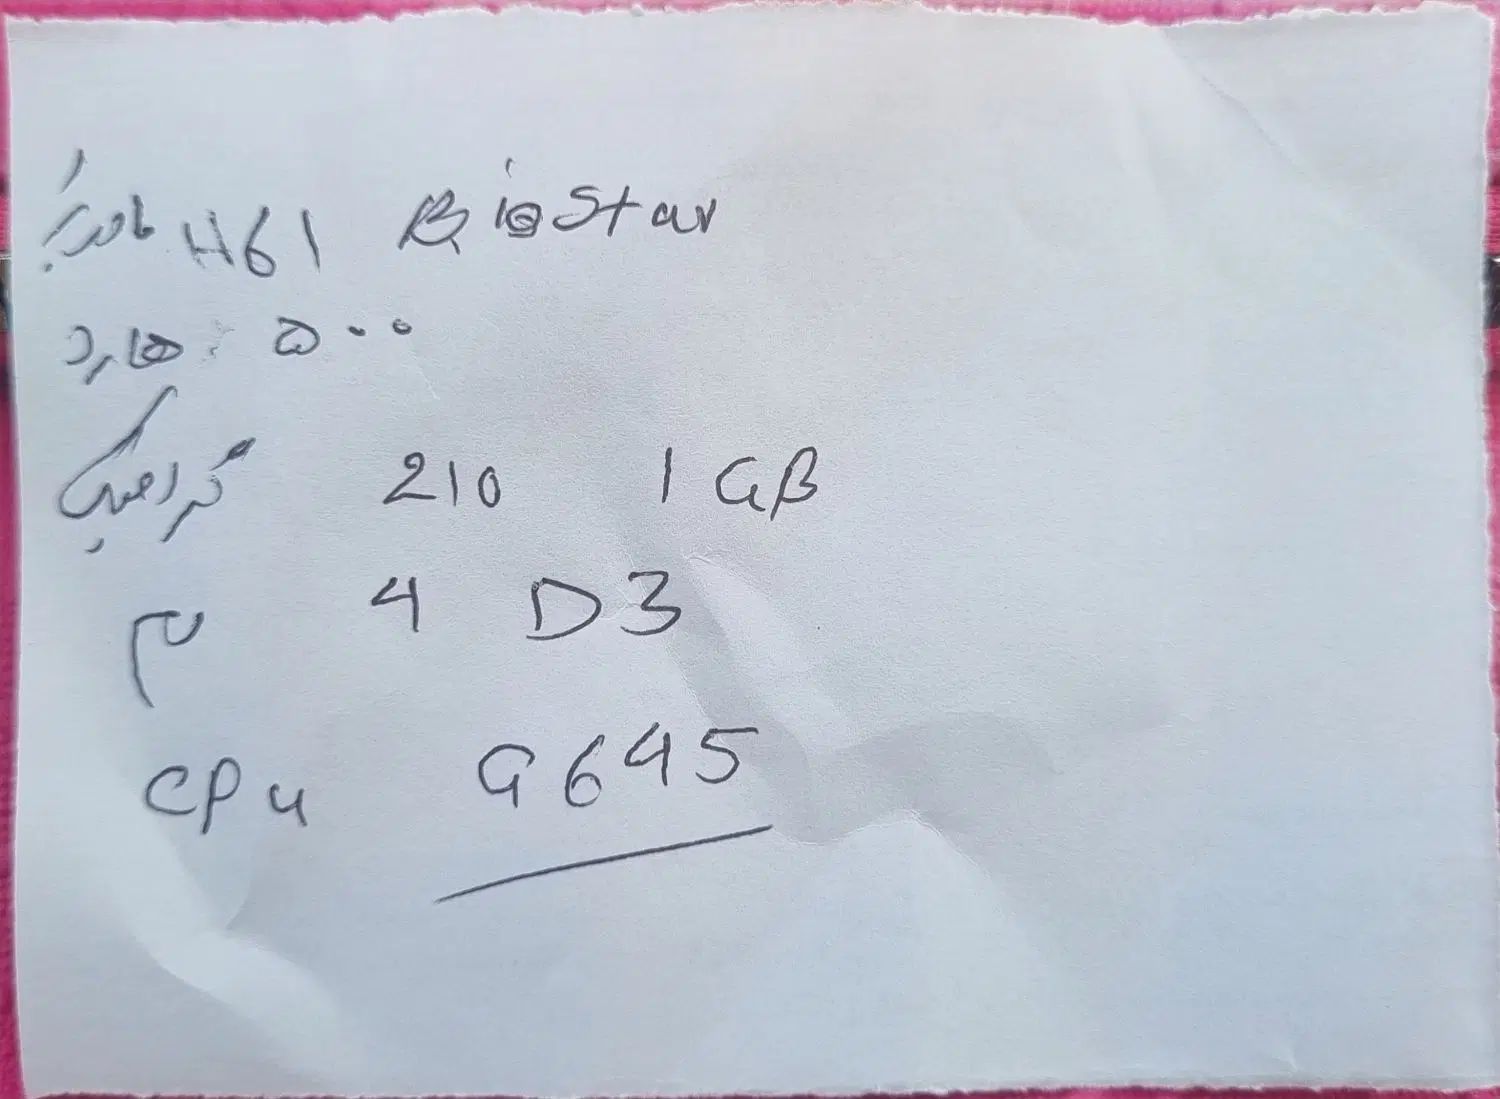 مادربرد H61 BioStar
هارد : ۵۰۰
گرافیک 210 1 GB
رم 4 D3
CPu G645